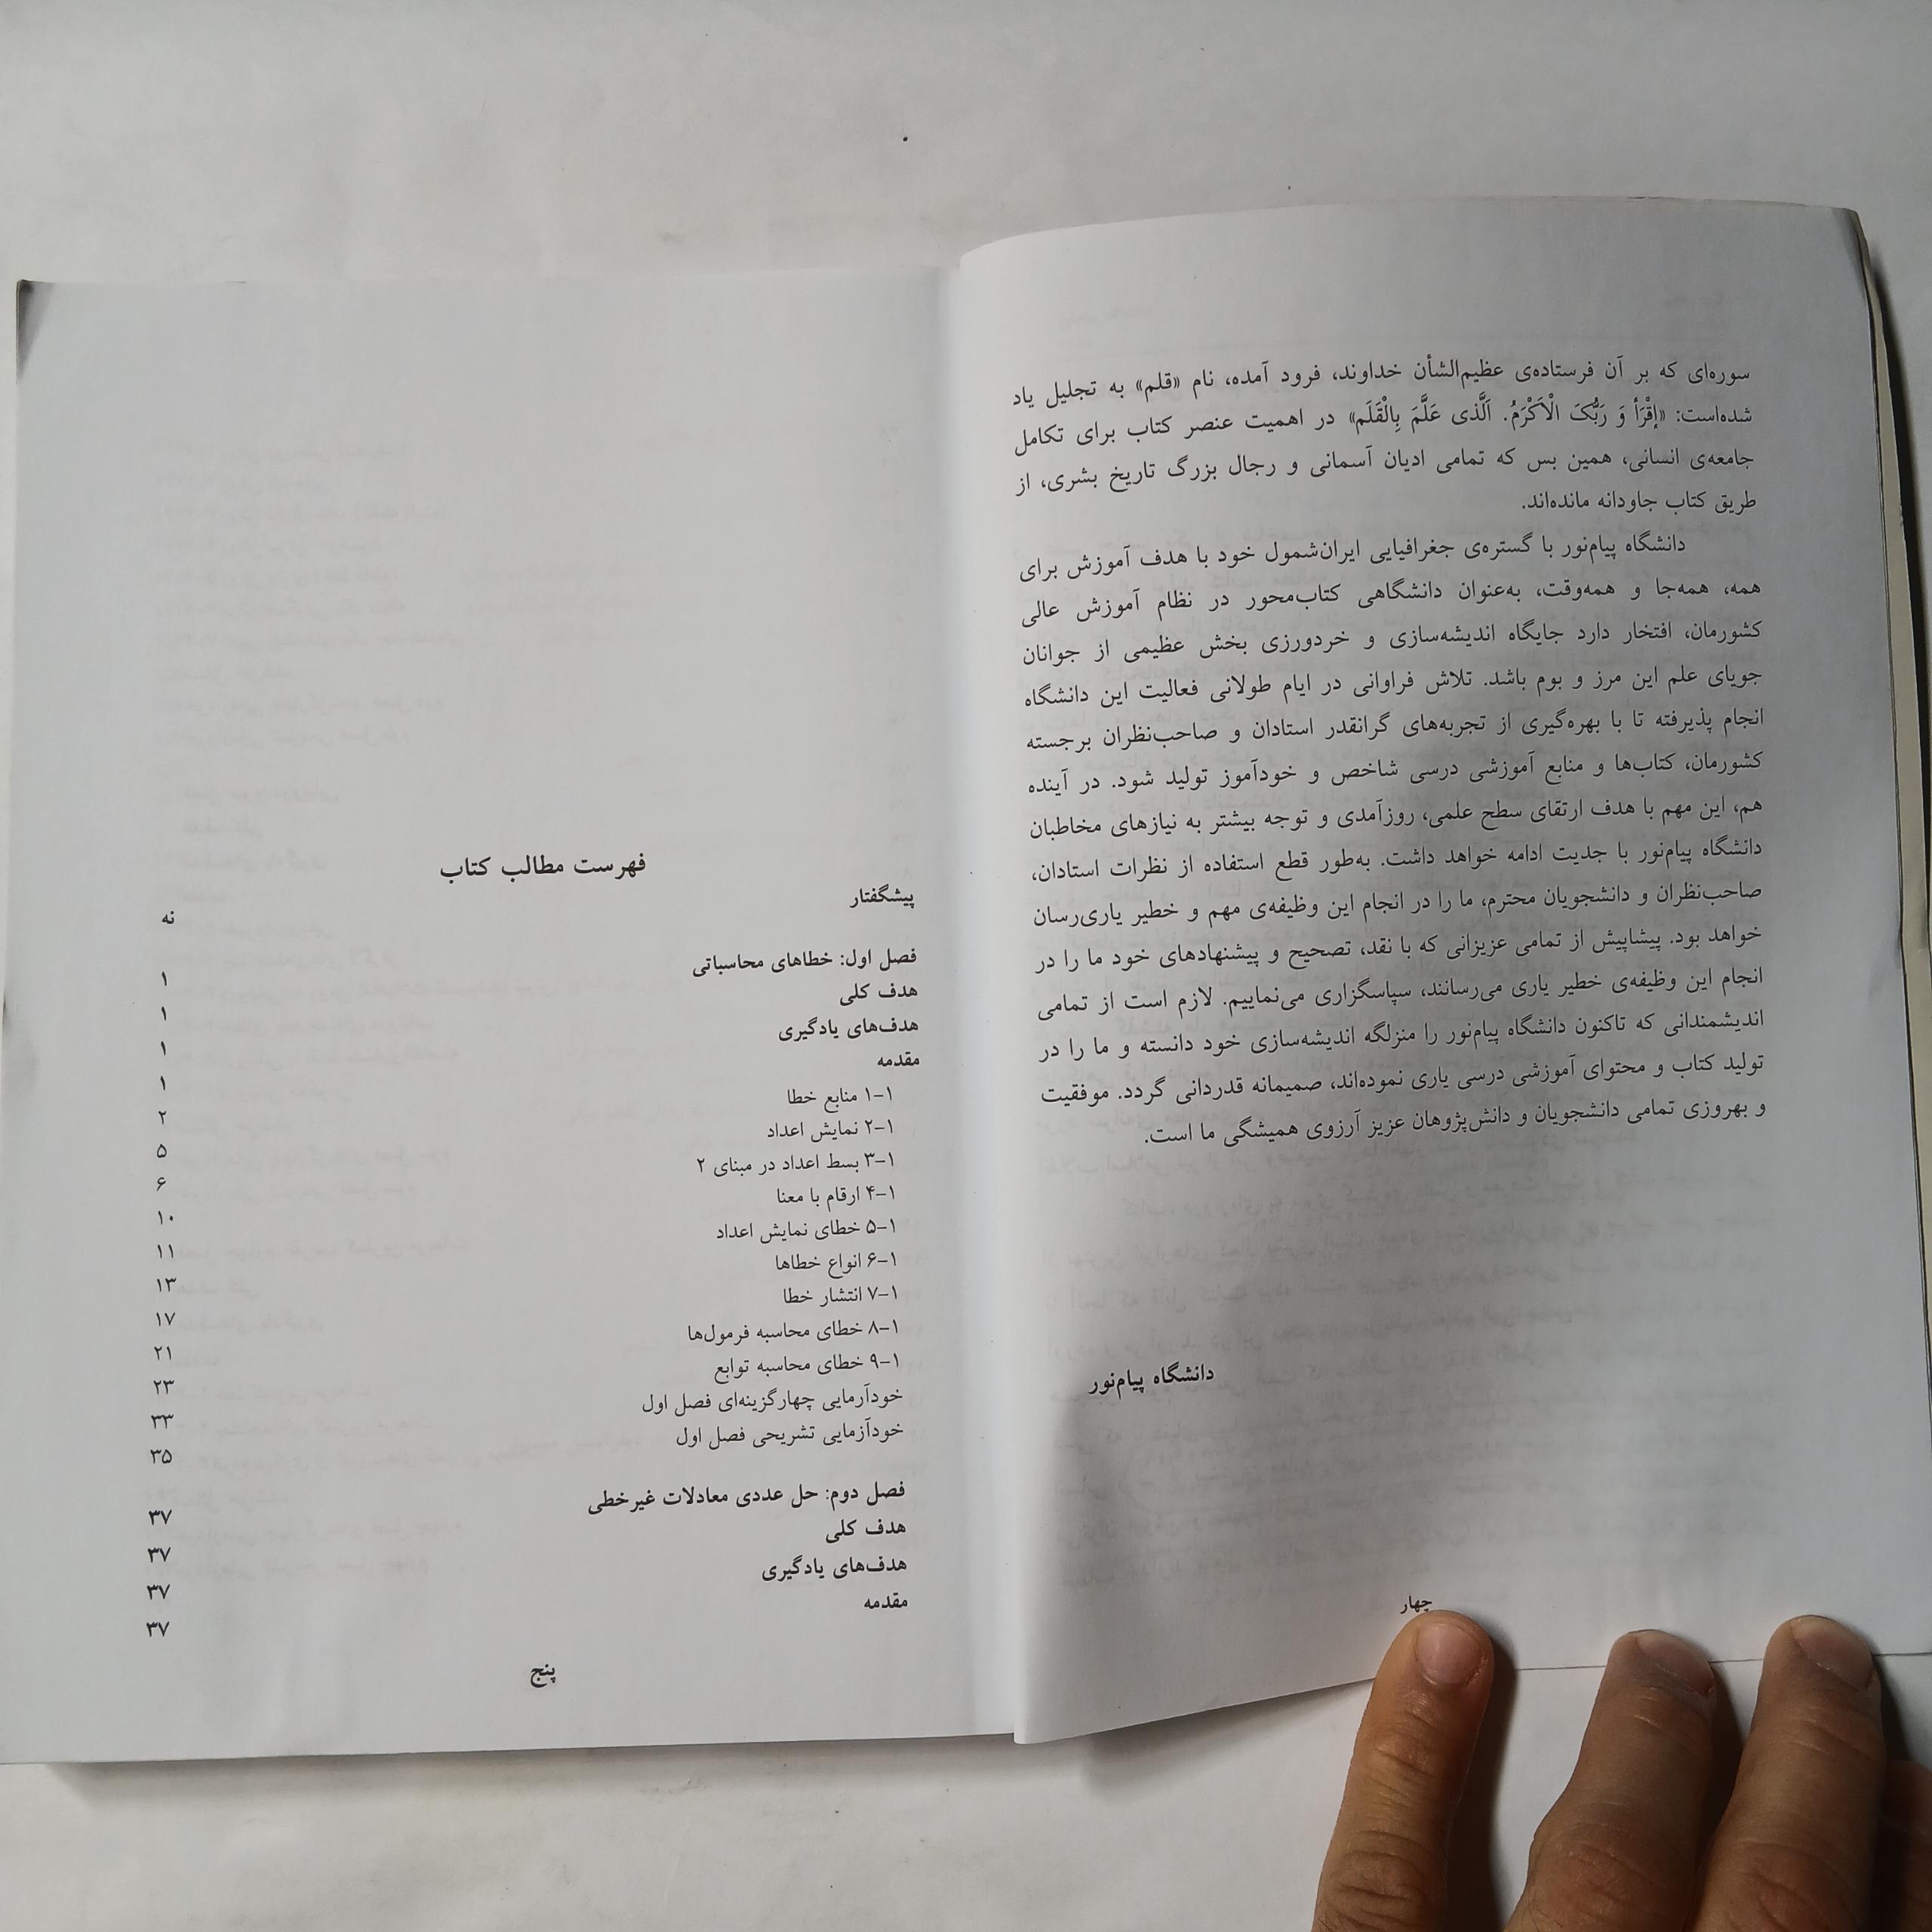 سوره‌ای که بر آن فرستاده‌ی عظیم‌الشأن خداوند، فرود آمده، نام «قلم» به تجلیل یاد
شده‌است: «إقْرَأ وَ رَبُّکَ الْاَکْرَمُ. اَلَّذی عَلَّمَ بِالْقَلَم» در اهمیت عنصر کتاب برای تکامل
جامعه‌ی انسانی، همین بس که تمامی ادیان آسمانی و رجال بزرگ تاریخ بشری، از
طریق کتاب جاودانه مانده‌اند.
دانشگاه پیام‌نور با گستره‌ی جغرافیایی ایران‌شمول خود با هدف آموزش برای
همه، همه‌جا و همه‌وقت، به‌عنوان دانشگاهی کتاب‌محور در نظام آموزش عالی
کشورمان، افتخار دارد جایگاه اندیشه‌سازی و خردورزی بخش عظیمی از جوانان
جویای علم این مرز و بوم باشد. تلاش فراوانی در ایام طولانی فعالیت این دانشگاه
انجام پذیرفته تا با بهره‌گیری از تجربه‌های گرانقدر استادان و صاحب‌نظران برجسته
کشورمان، کتاب‌ها و منابع آموزشی درسی شاخص و خودآموز تولید شود. در آینده
هم، این مهم با هدف ارتقای سطح علمی، روزآمدی و توجه بیشتر به نیازهای مخاطبان
دانشگاه پیام‌نور با جدیت ادامه خواهد داشت. به‌طور قطع استفاده از نظرات استادان،
صاحب‌نظران و دانشجویان محترم، ما را در انجام این وظیفه‌ی مهم و خطیر یاری‌رسان
خواهد بود. پیشاپیش از تمامی عزیزانی که با نقد، تصحیح و پیشنهادهای خود ما را در
انجام این وظیفه‌ی خطیر یاری می‌رسانند، سپاسگزاری می‌نماییم. لازم است از تمامی
اندیشمندانی که تاکنون دانشگاه پیام‌نور را منزلگه اندیشه‌سازی خود دانسته و ما را در
تولید کتاب و محتوای آموزشی درسی یاری نموده‌اند، صمیمانه قدردانی گردد. موفقیت
و بهروزی تمامی دانشجویان و دانش‌پژوهان عزیز آرزوی همیشگی ما است.
دانشگاه پیام‌نور
چهار
فهرست مطالب کتاب
پیشگفتار نه
فصل اول: خطاهای محاسباتی ۱
هدف کلی ۱
هدف‌های یادگیری ۱
مقدمه ۱
۱-۱ منابع خطا ۲
۱-۲ نمایش اعداد ۵
۱-۳ بسط اعداد در مبنای ۲ ۶
۱-۴ ارقام با معنا ۱۰
۱-۵ خطای نمایش اعداد ۱۱
۱-۶ انواع خطاها ۱۳
۱-۷ انتشار خطا ۱۷
۱-۸ خطای محاسبه فرمول‌ها ۲۱
۱-۹ خطای محاسبه توابع ۲۳
خودآرمایی چهارگزینه‌ای فصل اول ۳۳
خودآزمایی تشریحی فصل اول ۳۵
فصل دوم: حل عددی معادلات غیرخطی ۳۷
هدف کلی ۳۷
هدف‌های یادگیری ۳۷
مقدمه ۳۷
پنج